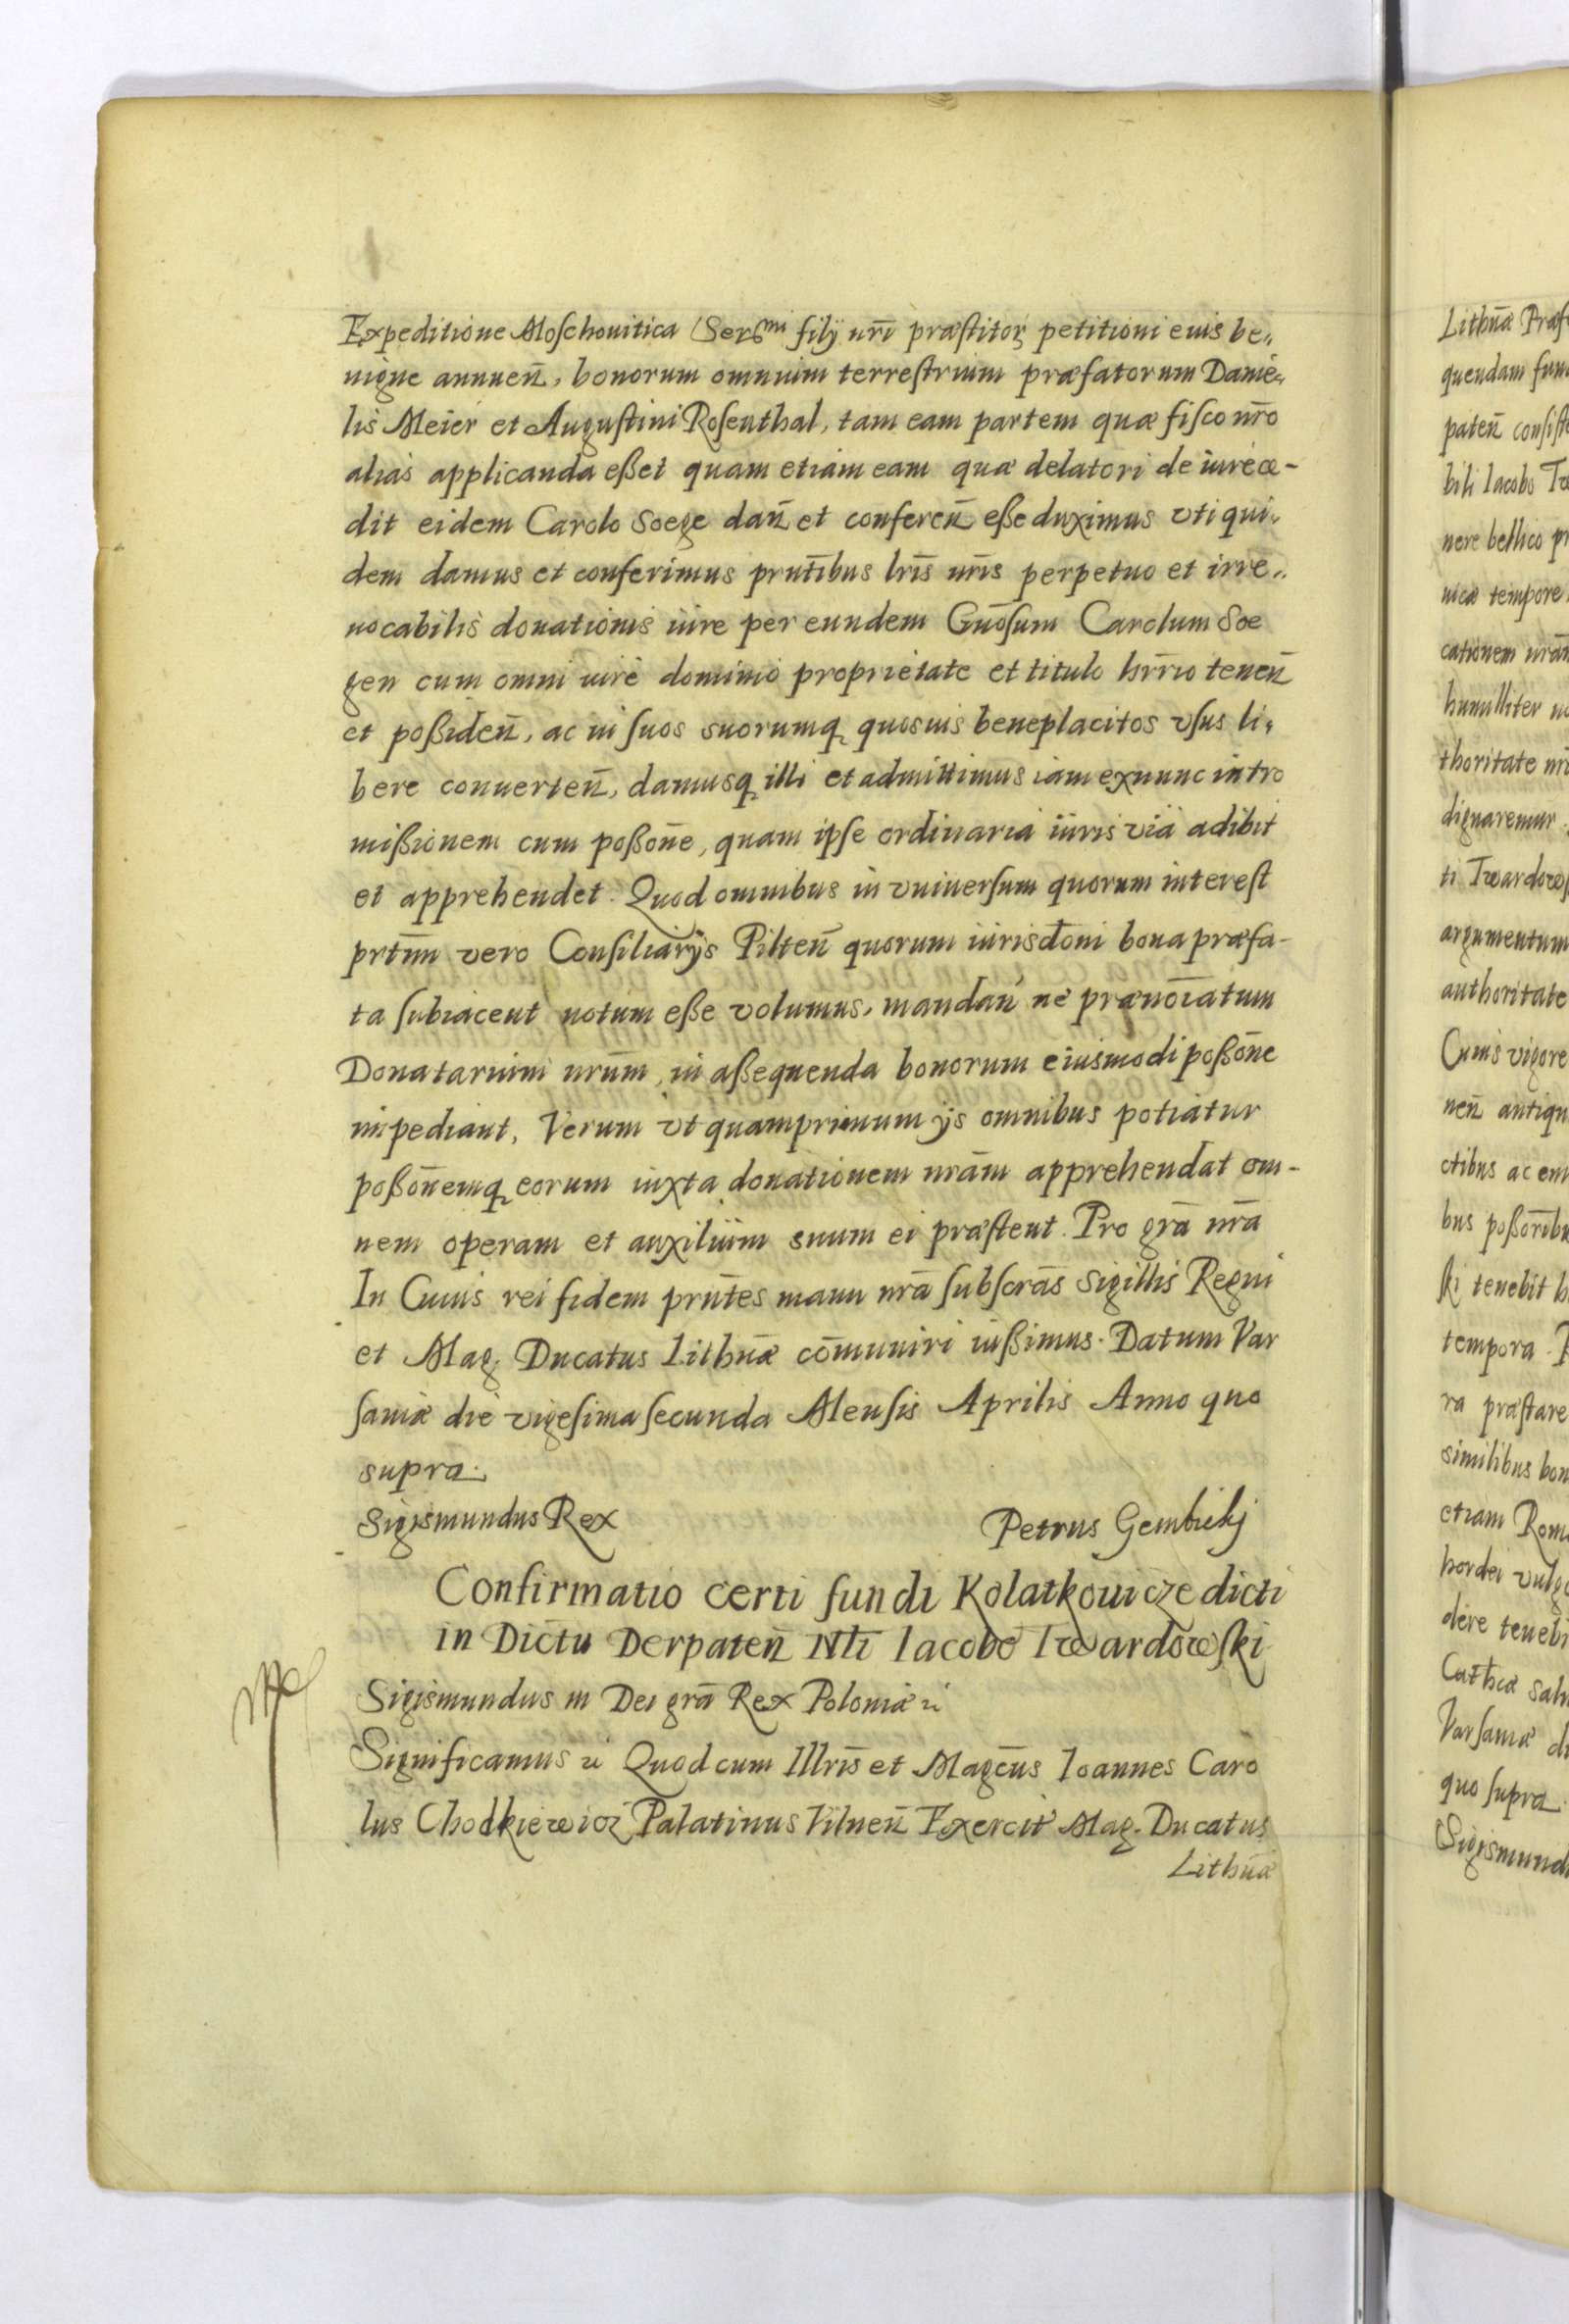 Expeditione Moschouitica Ser^mi filÿ nrī præstitoꝝ petitioni eius be„
nigne annuen̄, bonorum omnium terrestrium præfatorum Danie„
lis Meier et Augustini Rosenthal, tam eam partem quæ fisco nr̄o
alias applicanda eßet quam etiam eam quæ delatori de iure ce-
dit eidem Carolo Soege dan̄ et conferen̄ eße duximus vti qui„
dem damus et conferimus prn̄tibus lrīs nrīs perpetuo et irre„
uocabilis donationis iure per eundem Gnōsum Carolum Soe
gen cum omni iure dominio proprietate et titulo hrr̄io tenen̄
et poßiden̄, ac in suos suorumqꝫ quosuis beneplacitos vsus li„
bere conuerten̄, damusqꝫ illi et admittimus iam ex nunc intro
mißionem cum poßōne, quam ipse ordinaria iuris via adibit
et apprehendet. Quod omnibus in vniuersum quorum interest
prt̄im vero Consiliarÿs Pilten̄ quorum iurisdōni bona præfa-
ta subiacent notum eße volumus, mandan̄ ne prænoīatum
Donatarium nrūm, in aßequenda bonorum eiusmodi poßōne
impediant, Verum vt quamprimum ÿs omnibus potiatur
poßōnemqꝫ eorum iuxta donationem nrām apprehendat om-
nem operam et auxilium suum ei præstent. Pro grā nrā
In Cuius rei fidem prn̄tes manu nrā subscrās sigillis Regni
et Mag. Ducatus Lithūæ cōmuniri iußimus. Datum Var
sauiæ die vigesima secunda Mensis Aprilis Anno quo
supra.
Sigismundus Rex Petrus Gembicki
Confirmatio certi fundi Kolatkouicze dicti
in Dictu Derpaten̄ Nlī Iacobo Twardowski
Sigismundus III Dei grā Rex Poloniæ ꝛc
Significamus ꝛc Quod cum Illrīs et Magcūs Ioannes Caro
lus Chodkiewicz Palatinus Vilnen̄ Exercit' Mag. Ducatus
Lithūæ
Lithūæ Præf
quendam fun
paten̄ consiste
bili Iacobo Tw
nere bellico pr
nicæ tempore
cationem nrām
humilliter
thoritate nr
dignaremur
ti Twardows
argumentum
authoritate
Cuius vigore
nen̄ antiqu
ctibus ac em
bus poßorību
ski tenebit h
tempora. P
ra præstare
similibus bon
etiam Roma
hordei vulgo
dere tenebi
Cathcæ salu
Varsauiæ di
quo supra.
Sigismund